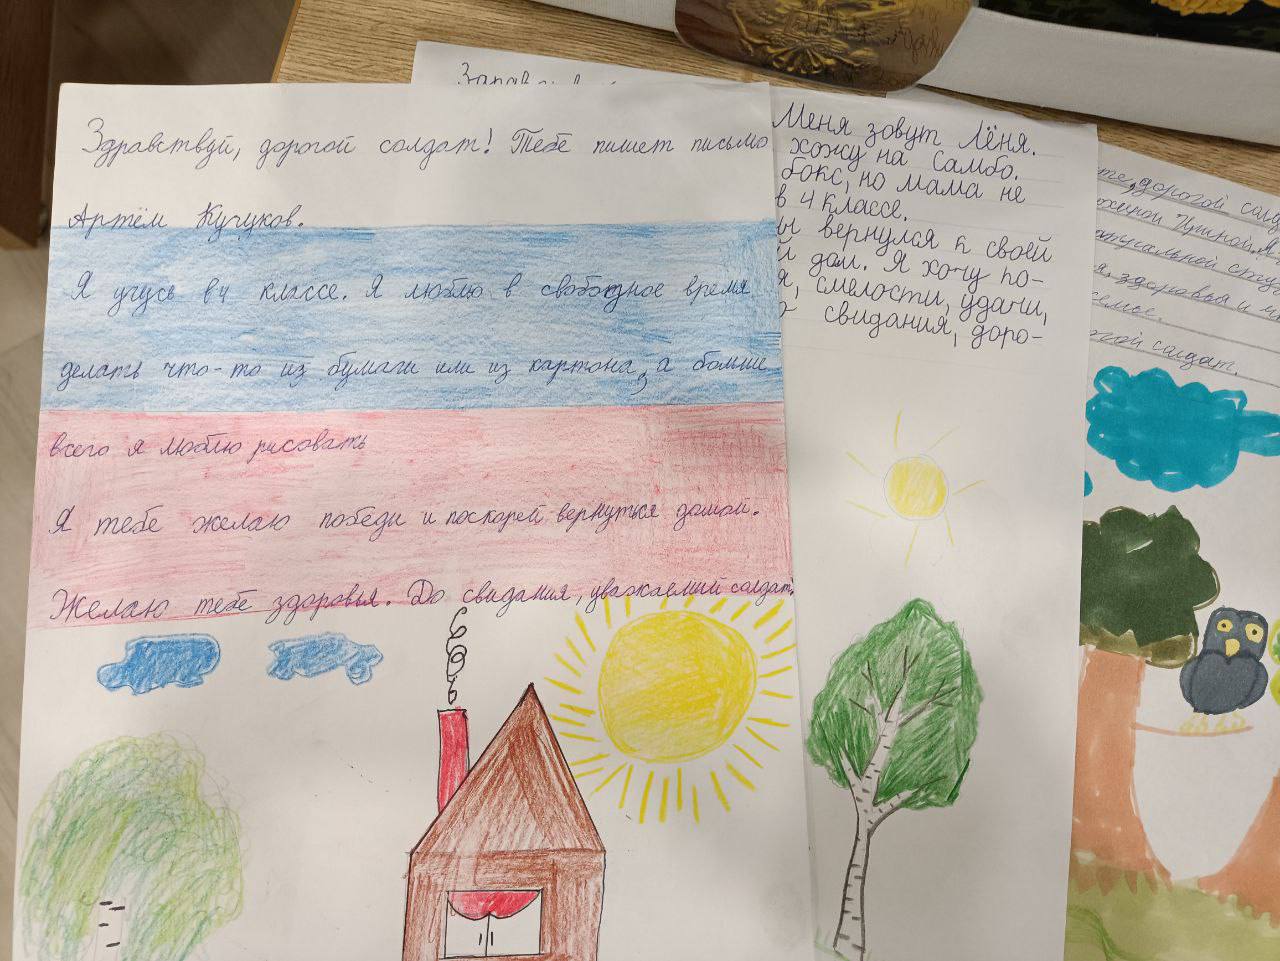 Здравствуй, дорогой солдат! Тебе пишет письмо
Артём Кучуков.
Я учусь в 4 классе. Я люблю в свободное время
делать что-то из бумаги или из картона, а больше
всего я люблю рисовать
Я тебе желаю победи и поскорей вернуться домой.
Желаю тебе здоровья. До свидания, уважаемий солдат.
Меня зовут Лёня.
хожу на Самбо.
бокс, но мама не
в 4 классе.
ы вернулся к своей
й дом. Я хочу по-
я, смелости, удачи,
свидания, доро-
те, дорогой солд
здоровья и
семье.
огой солдат.